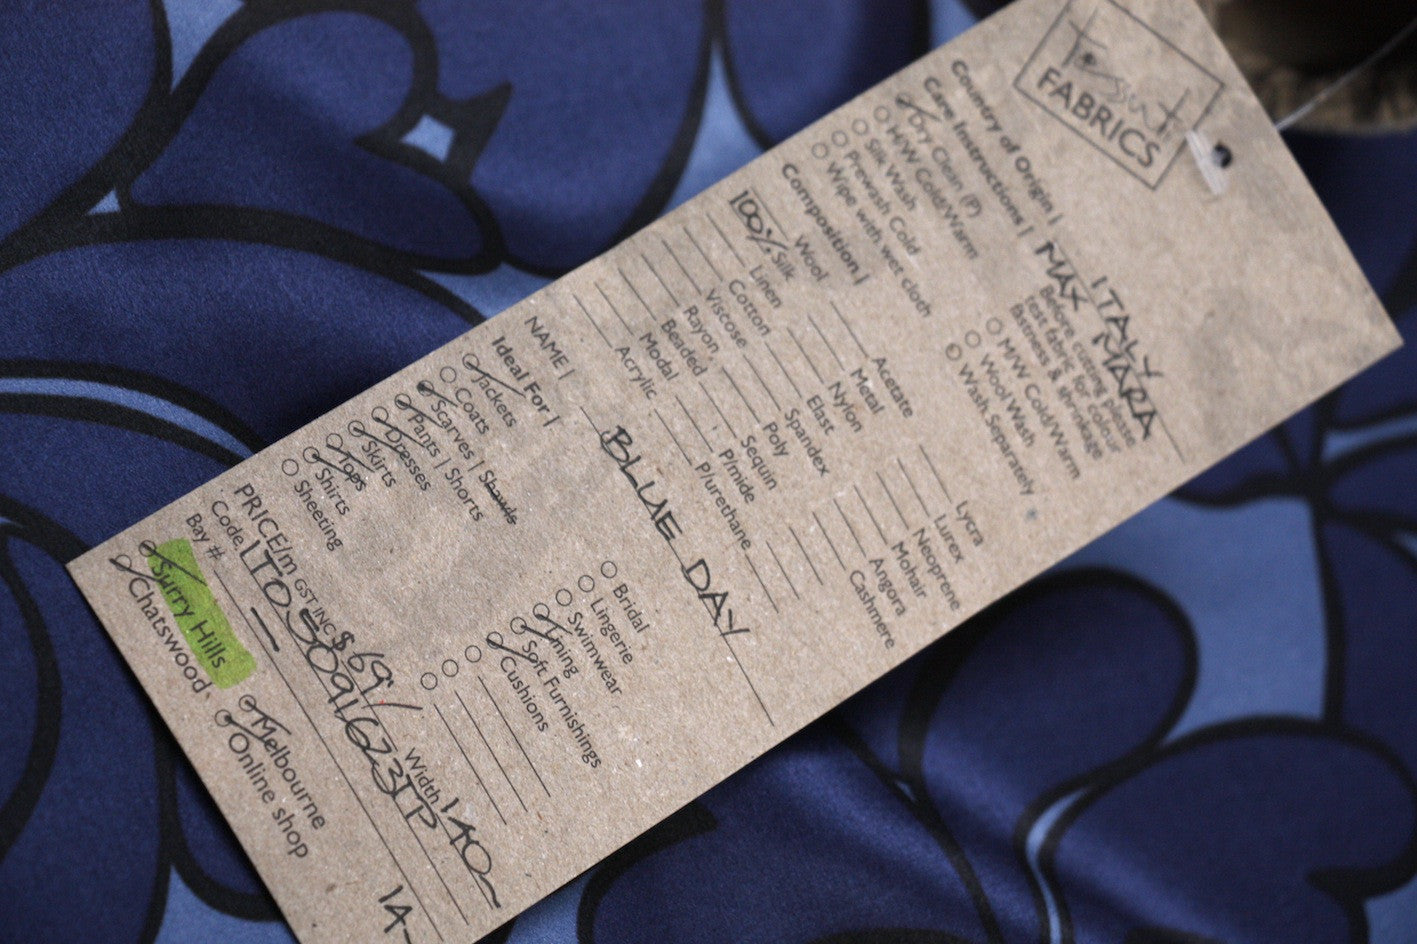 Tessuti
FABRICS
Country of Origin | ITALY
MAX MARA
Care Instructions |
Before cutting please
test fabric for colour
fastness & shrinkage
Dry Clean (P)
H/W Cold/Warm
Silk Wash
Prewash Cold
Wipe with wet cloth
M/W Cold/Warm
Wool Wash
Wash Separately
Composition |
Wool
100% Silk
Linen
Cotton
Viscose
Rayon
Beaded
Modal
Acrylic
Acetate
Metal
Nylon
Elast
Spandex
Poly
Sequin
P/mide
P/urethane
Lycra
Lurex
Neoprene
Mohair
Angora
Cashmere
NAME | BLUE DAY
Ideal For |
Jackets
Coats
Scarves | Shawls
Pants | Shorts
Dresses
Skirts
Tops
Shirts
Sheeting
Bridal
Lingerie
Swimwear
Lining
Soft Furnishings
Cushions
PRICE/m GST INC $69 Width 140
Code
Bay # — 14
Surry Hills
Chatswood
Melbourne
Online shop